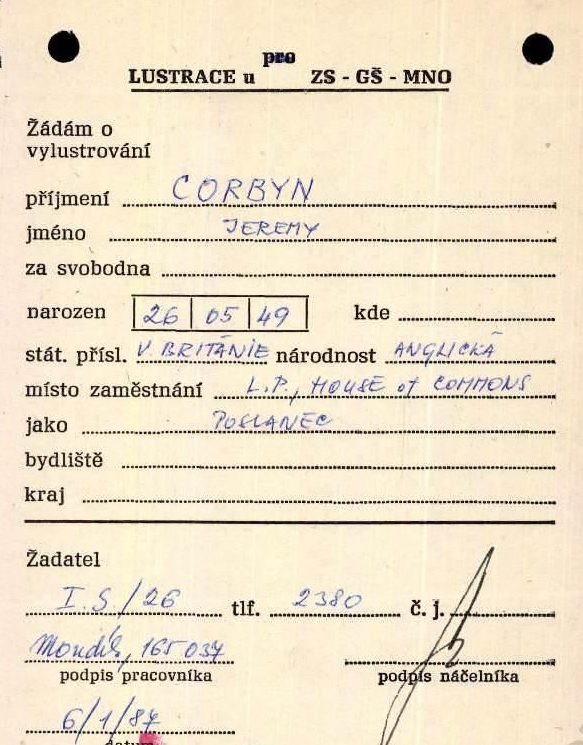 pro
LUSTRACE u ZS - GŠ - MNO
Žádám o
vylustrování
příjmení CORBYN
jméno JEREMY
za svobodna
narozen 26 05 49 kde
stát. přísl. V. BRITÁNIE národnost ANGLICKÁ
místo zaměstnání L.P., HOUSE of COMMONS
jako POSLANEC
bydliště
kraj
Žadatel
I. S/26 tlf. 2380 č. j.
165037
podpis pracovníka podpis náčelníka
6/1/87